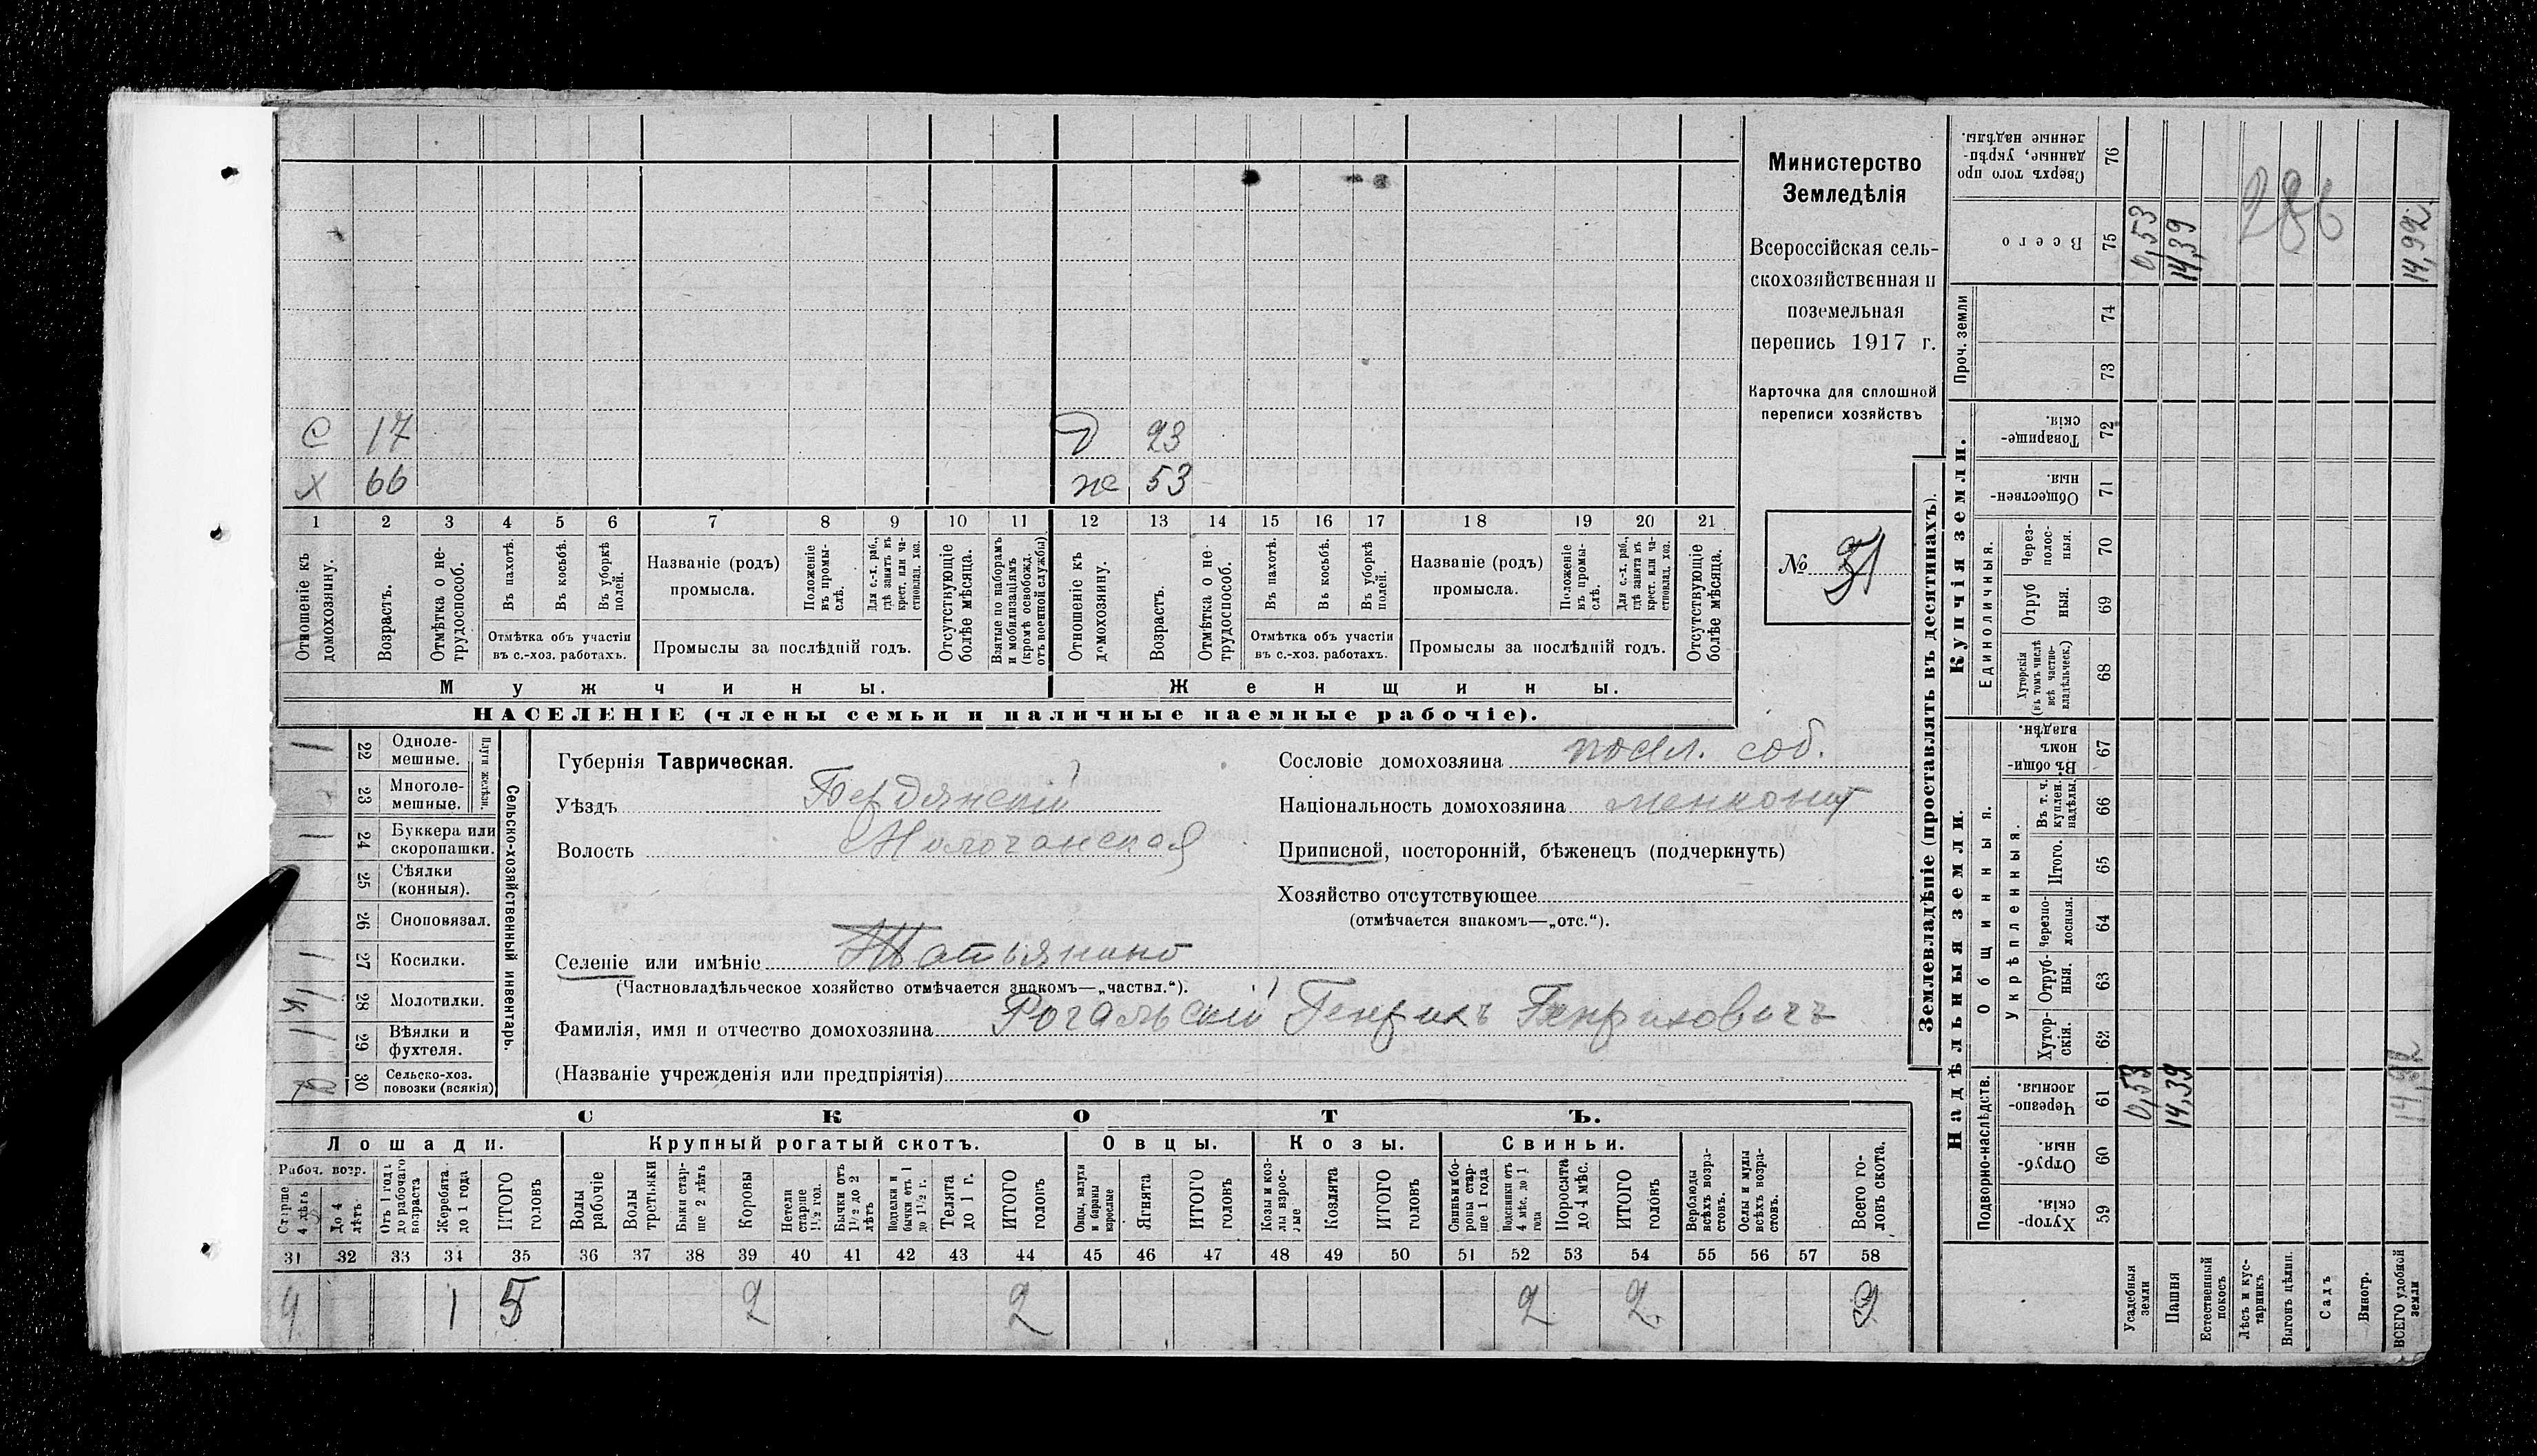 Министерство
Земледѣлія
Всероссійская сель-
скохозяйственная и
поземельная
перепись 1917 г.
Карточка для сплошной
переписи хозяйствъ
№ 31
С 17
Х 66
Д 23
ж 53
1 2 3 4 5 6 7 8 9 10 11 12 13 14 15 16 17 18 19 20 21
Отношеніе къ домохозяину.
Возрастъ.
Отмѣтка о не-трудоспособ.
Въ пахотѣ.
Въ косьбѣ.
Въ уборкѣ полей.
Отмѣтка объ участіи
въ с.-хоз. работахъ.
Названіе (родъ)
промысла.
Положеніе въ промы-слѣ.
Для с.-х. раб., гдѣ занятъ въ крест. или ча-стновлад. хоз.
Промыслы за послѣдній годъ.
Отсутствующіе болѣе мѣсяца.
Взятые по наборамъ и мобилизаціямъ (кромѣ освобожд. отъ военной службы)
Отношеніе къ домохозяину.
Возрастъ.
Отмѣтка о не-трудоспособ.
Въ пахотѣ.
Въ косьбѣ.
Въ уборкѣ полей.
Отмѣтка объ участіи
въ с.-хоз. работахъ.
Названіе (родъ)
промысла.
Положеніе въ промы-слѣ.
Для с.-х. раб., гдѣ занята въ крест. или ча-стновлад. хоз.
Промыслы за послѣдній годъ.
Отсутствующіе болѣе мѣсяца.
Мужчины.
Женщины.
НАСЕЛЕНІЕ (члены семьи и наличные наемные рабочіе).
Сельско-хозяйственный инвентарь.
Плуги желѣзн.
1 22 Одноле-мешные.
23 Многоле-мешные.
1 24 Буккера или скоропашки.
25 Сѣялки (конныя).
26 Сноповязал.
1 27 Косилки.
28 Молотилки.
1 29 Вѣялки и фухтеля.
30 Сельско-хоз. повозки (всякія)
Губернія Таврическая.
Уѣздъ Бердянскій
Волость Молочанская
Селеніе или имѣніе Татьянино
(Частновладѣльческое хозяйство отмѣчается знакомъ—„частвл.“).
Фамилія, имя и отчество домохозяина Рогальскій Генрихъ Генриховичъ
(Названіе учрежденія или предпріятія)
Сословіе домохозяина посел. соб.
Національность домохозяина менонит
Приписной, посторонній, бѣженецъ (подчеркнуть)
Хозяйство отсутствующее
(отмѣчается знакомъ—„отс.“).
СКОТЪ.
Лошади.
Крупный рогатый скотъ.
Овцы.
Козы.
Свиньи.
Рабоч. возр.
Старше 4 лѣтъ
До 4 лѣтъ.
Отъ 1 года до рабочаго возраста
Жеребята до 1 года
ИТОГО головъ
Волы рабочіе
Волы третьяки
Быки стар-ше 2 лѣтъ
Коровы
Нетели старше 1½ год.
Бычки отъ 1½ до 2 лѣтъ
Подтелки и бычки отъ 1 до 1½ г.
Телята до 1 г.
ИТОГО головъ
Овцы, валухи и бараны взрослые
Ягнята
ИТОГО головъ
Козы и коз-лы взрос-лые
Козлята
ИТОГО головъ
Свиньи и бо-ровы стар-ше 1 года
Подсвинки отъ 4 мѣс. до 1 года
Поросята до 4 мѣс.
ИТОГО головъ
Верблюды всѣхъ возра-стовъ.
Ослы и мулы всѣхъ возра-стовъ.
Всего го-ловъ скота.
31 32 33 34 35 36 37 38 39 40 41 42 43 44 45 46 47 48 49 50 51 52 53 54 55 56 57 58
4 1 5 2 2 2 2 9
Землевладѣніе (проставлять въ десятинахъ).
Надѣльныя земли.
Купчія земли.
Проч. земли
Подворно-наслѣдств.
Общинныя.
Укрѣпленныя.
Единоличныя.
Хутор-скія. 59
Отруб-ныя. 60
Черезпо-лосныя. 61
Хутор-скія. 62
Отруб-ныя. 63
Черезпо-лосныя. 64
Итого. 65
Въ т. ч. куплен. надѣлы. 66
Въ общи-номъ владѣн. 67
Хуторскія (въ томъ числѣ всѣ частно-владѣльческ.) 68
Отруб ныя. 69
Через-полос-ныя. 70
Обществен-ныя. 71
Товарище-скія. 72
73
74
Всего 75
Сверхъ того про данные, укрѣп-ленные надѣлы. 76
Усадебныя земли 0,53 0,53
Пашня 14,39 14,39
Естественный покосъ
Лѣсъ и кус-тарникъ
Выгонъ цѣлин.
Садъ
Виногр.
ВСЕГО удобной земли 14,92 14,92.
286